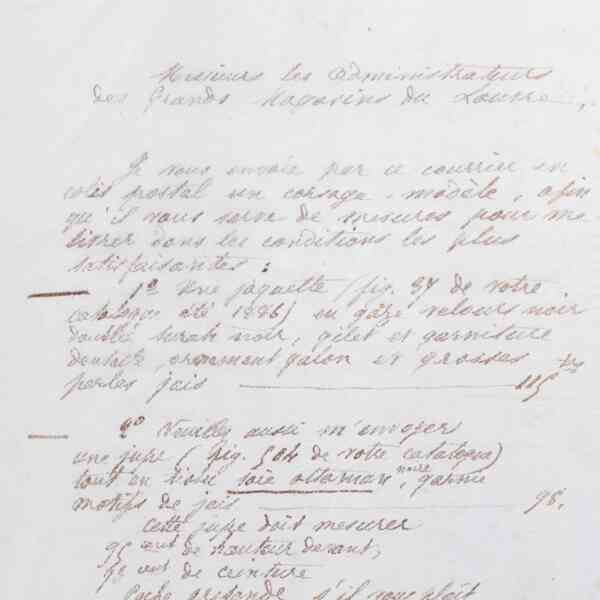 Messieurs les administrateurs
des Grands Magasins du Louvre,
Je vous envoie par ce courrier en
colis postal un corsage-modèle, afin
qu'il vous serve de mesures pour me
livrer dans les conditions les plus
satisfaisantes :
1º Une jaquette (fig. 37 de votre
catalogue été 1886) en gaze velours noir
doublé surah noir, gilet et garniture
dentelle, ornement galon et grosses
perles jais 115
2º Veuillez aussi m'envoyer
une jupe (fig. 504 de votre catalogue)
tout en tissu soie ottoman noire, garnie
motifs de jais 98.
Cette jupe doit mesurer
95 cent de hauteur devant,
cent de ceinture
s'il vous plaît